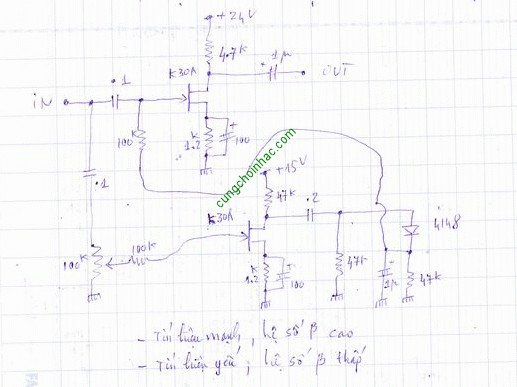 +24V
4.7K
1µ
OUT
K30A
.1
IN
100K
1.2K
100
.1
+15V
47K
.2
K30A
4148
100K
100K
1.2K
100
47K
1µ
47K
cungchoinhac.com
- Tín hiệu mạnh, hệ số β cao
- Tín hiệu yếu, hệ số β thấp